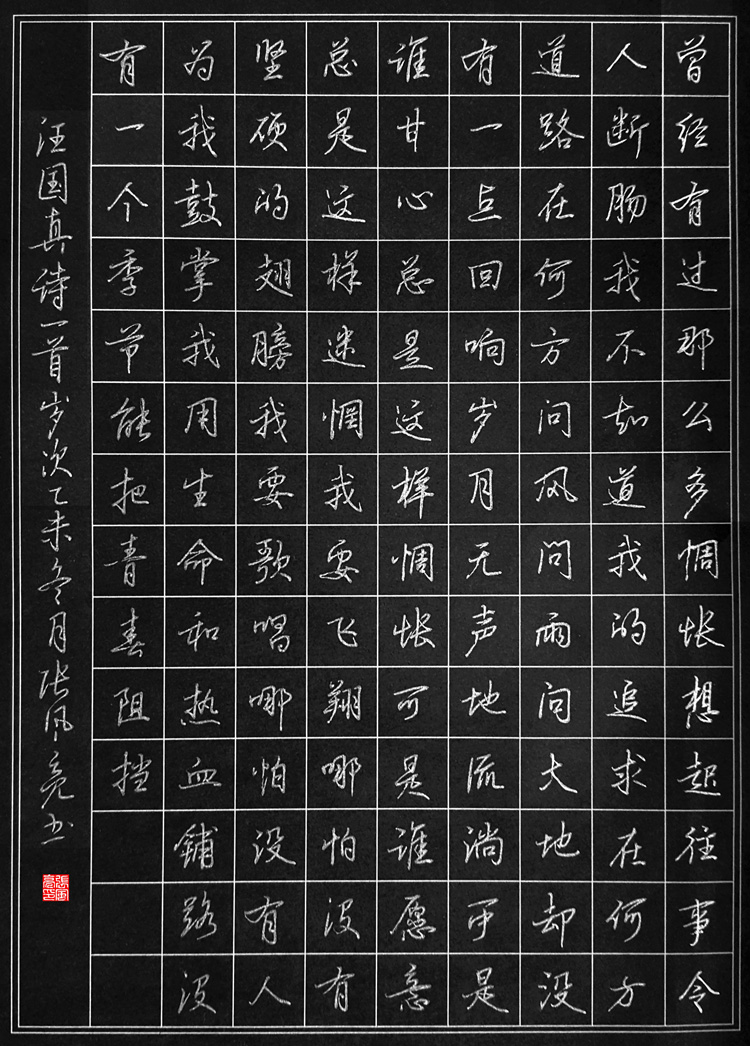 曾经有过那么多惆怅想起往事令
人断肠我不知道我的追求在何方
道路在何方问风问雨问大地却没
有一点回响岁月无声地流淌可是
谁甘心总是这样惆怅可是谁愿意
总是这样迷惘我要飞翔哪怕没有
坚硕的翅膀我要歌唱哪怕没有人
为我鼓掌我用生命和热血铺路没
有一个季节能把青春阻挡
汪国真诗一首岁次乙未冬月张风亮书